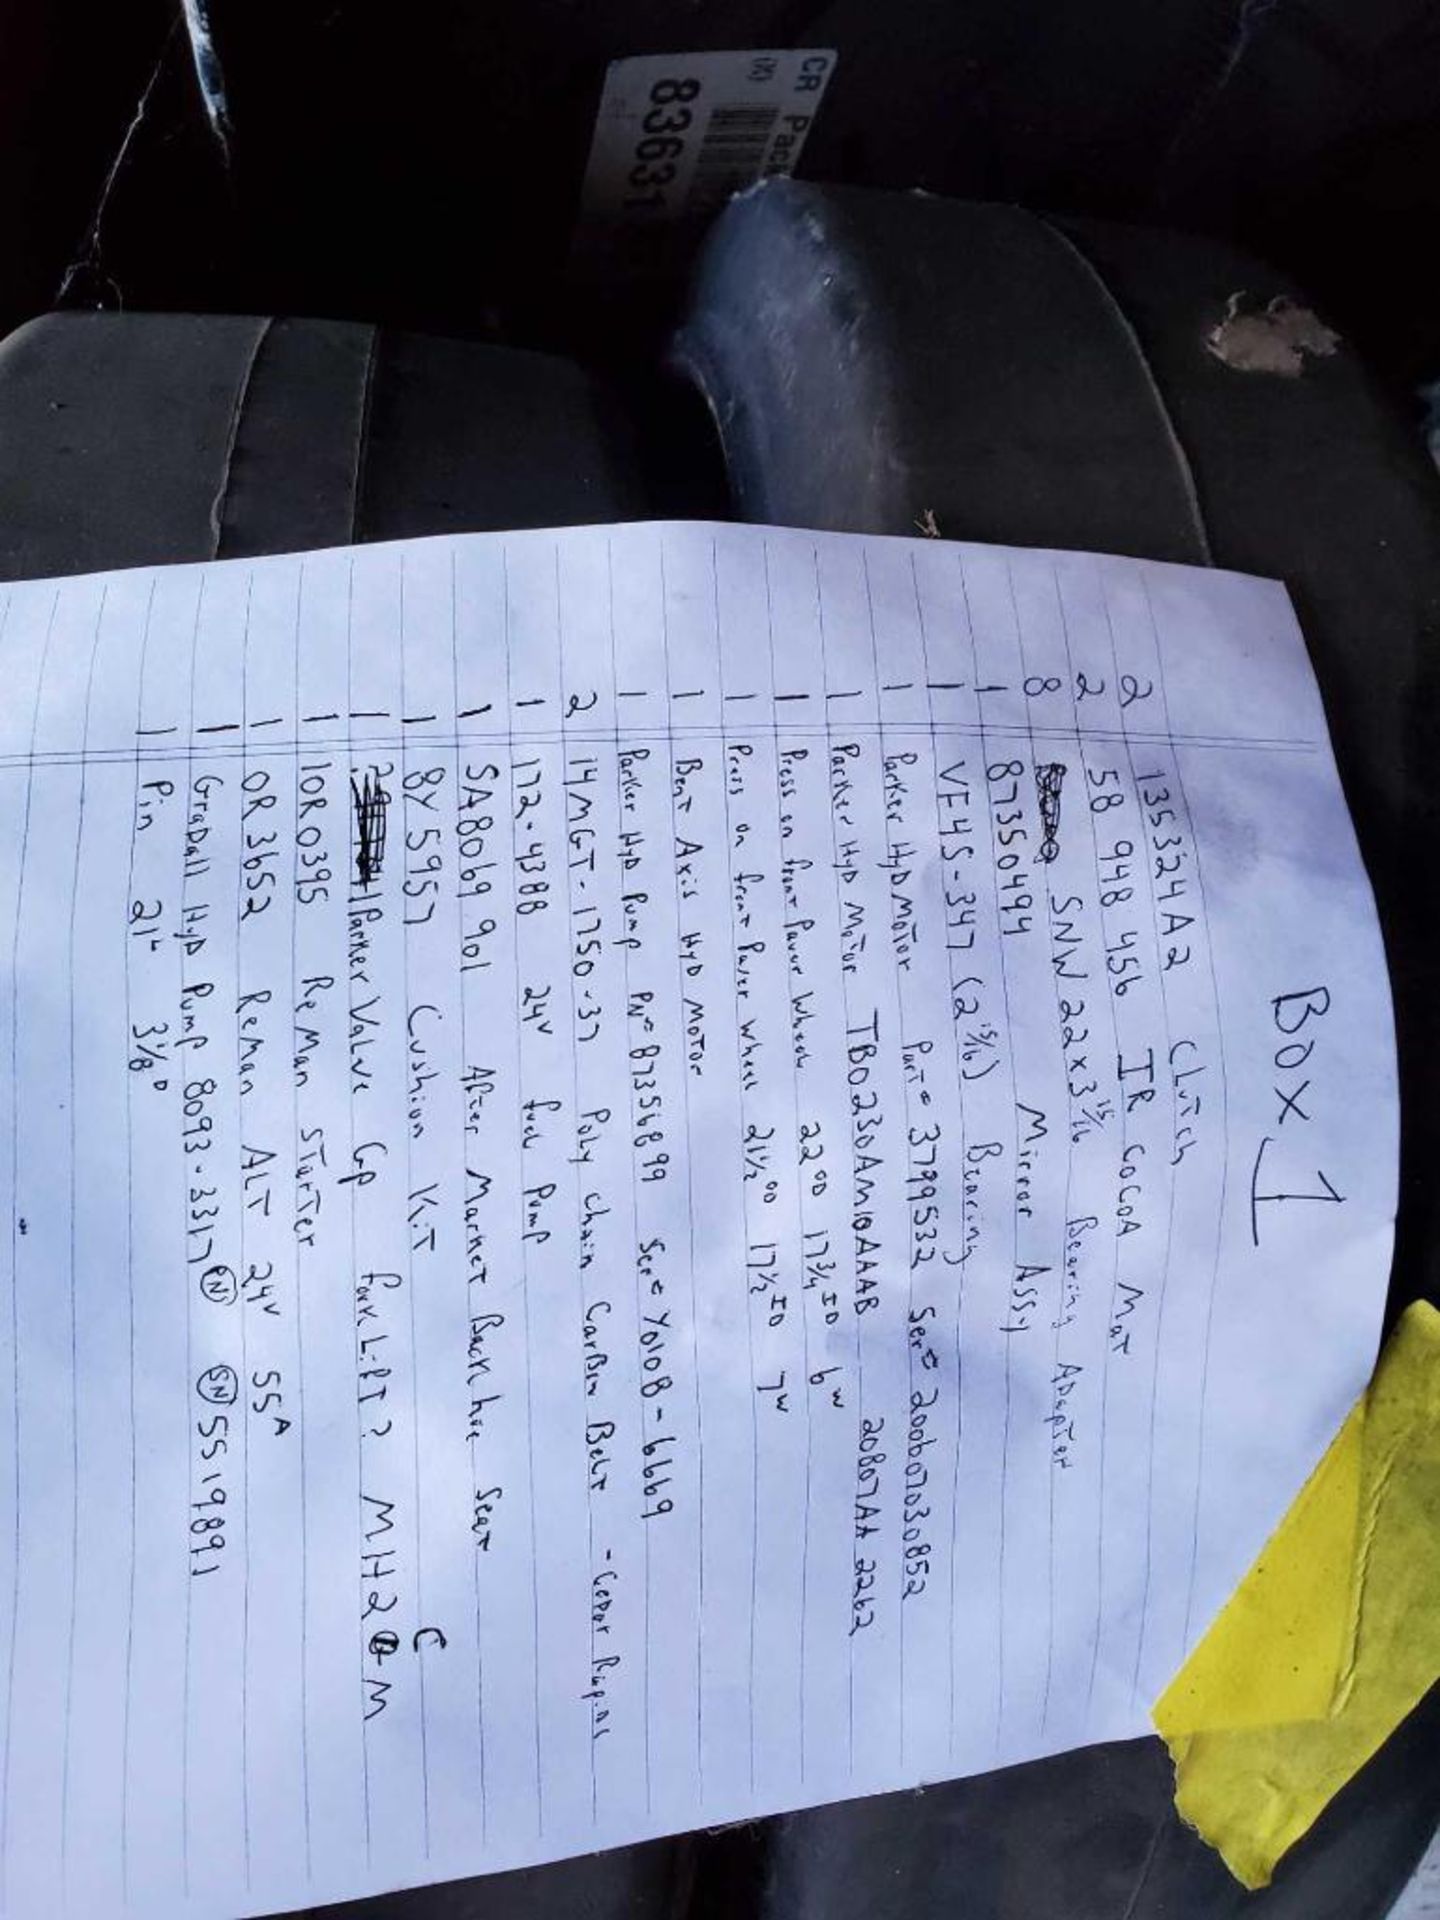 Box 1
2 135324A2 Clutch
2 58 948 456 IR CoCoA Mat
8 SNW 22 x 3 15/16 Bearing Adapter
1 87350494 Mirror Assy
1 VE4S-347 (2 15/16) Bearing
1 Parker Hyd Motor Part= 3799532 Ser= 200607030852
1 Parker Hyd Motor TB0230AM10AAAB 20807AA 2262
1 Press on front Paver Wheel 22 OD 17 3/4 ID 6 W
1 Press on front Paver Wheel 21 1/2 OD 17 1/2 ID 7 W
1 Bent Axis Hyd Motor
1 Parker Hyd Pump PN= 87356899 Ser= Y0108-6669
2 14MGT-1750-37 Poly Chain Carbon Belt - Cedar Rapids
1 172-4388 24V fuel Pump
1 SA8069 901 After Market Backhoe Seat
1 8Y5957 Cushion KiT
1 Parker Valve Gp forkLift? MH2 M C
1 10R0395 ReMan Starter
1 0R3652 Reman ALT 24V 55A
1 Gradall Hyd Pump 8093-3317 PN SN 5519891
1 Pin 21 L 3 1/8 D
CR Pack
(K)
83631